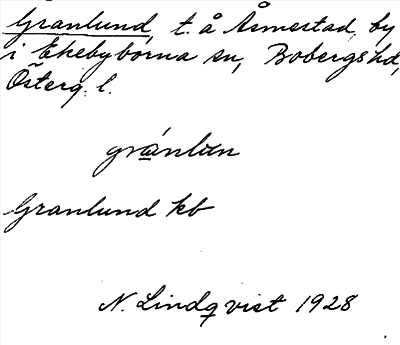 Granlund, t. å Åsmestad, by
i Ekebyborna sn, Bobergs hd,
Österg. l.
gránlun
Granlund kb
N. Lindqvist 1928